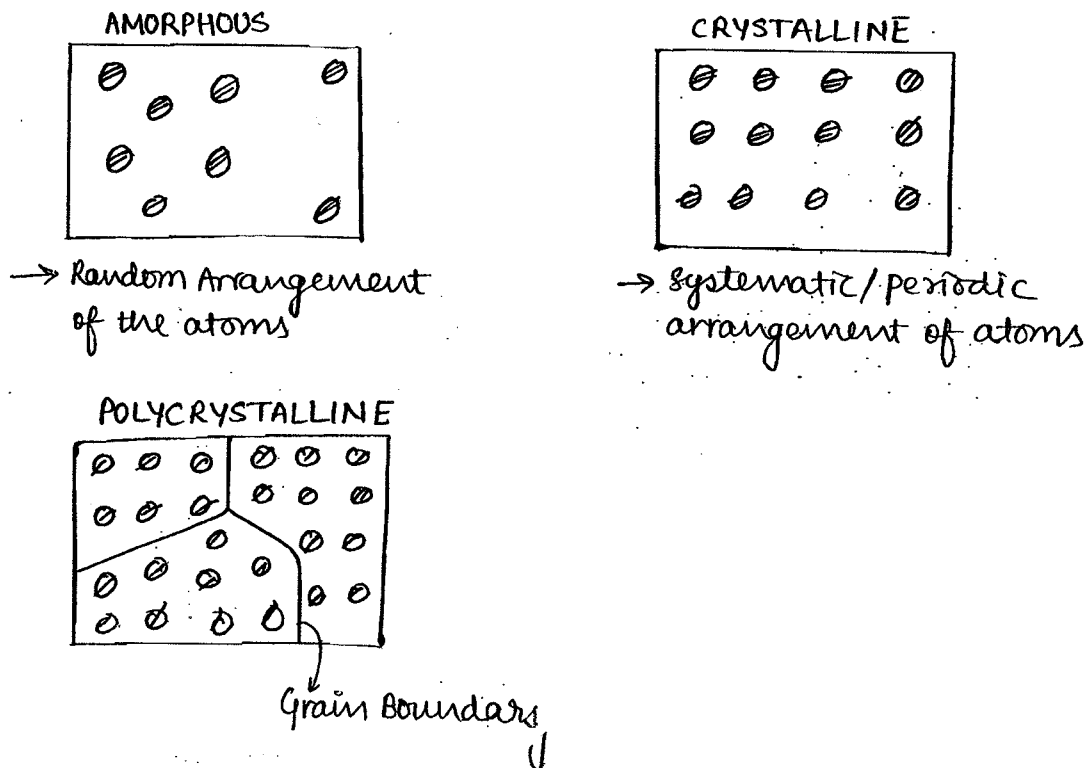 AMORPHOUS
→ Random Arrangement
of the atoms
CRYSTALLINE
→ Systematic/Periodic
arrangement of atoms
POLYCRYSTALLINE
Grain Boundary